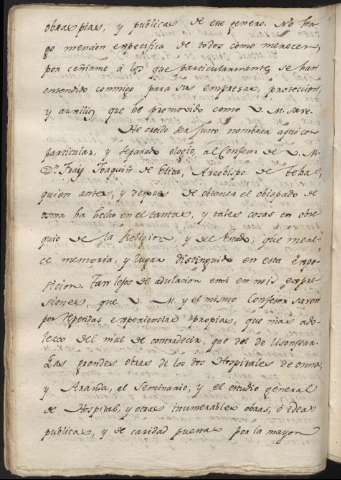 obras pias, y publicas de este genero. No ha
go mencion especifica de todos como merecen,
por ceñirme á los que particularmente se han
entendido conmigo para sus empresas, proteccion,
y auxilios que he promovido como V. M. sabe.
He creido ha justo nombrar aqui con
particular, y separado elogio, al Confesor de V. M.
Dn. Fray Joaquin de Eleta, Arzobispo de Tebas,
quien antes, y despues de obtener el obispado de
osma ha hecho en el tantas, y tales cosas en obse
quio de la Religion y del Estado, que mere
ce memoria, y lugar distinguido en esta Expo
sicion. Tan lejos de adulacion en mis expre
siones, que V. M. y el mismo Confesor saven
por repetidas experiencias propias, que mas ado
lezco del mal de contradecir, que del de lisonjear.
Las grandes obras de los dos Hospitales de osma
y Aranda, el Seminario, y el estudio general
de Hospitales, y otras inumerables obras, ó ideas
publicas, y de caridad puestas por la mayor